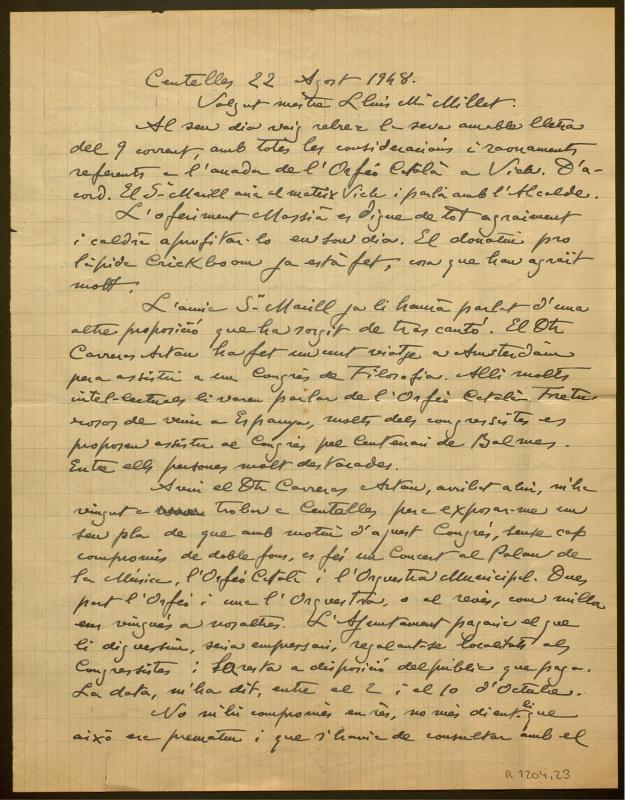 Centelles 22 Agost 1948.
Volgut mestre Lluis Mª Millet.
Al seu dia vaig rebre la seva amable lletra
del 9 corrent, amb totes les consideracions i raonaments
referents a l'anada de l'Orfeó Català a Vich. D'a-
cord. El Sr Marill aniá el mateix Vich i parlà amb l'Alcalde.
L'oferiment Massià es digne de tot agraiment
i caldrà aprofitar-lo en son dia. El donatiu pro
làpida Crickboom ja està fet, cosa que han agraït
molt.
L'amic Sr Marill ja li haurà parlat d'una
altre proposició que ha sorgit de tras cantó. El Dtr
Carreras Artau ha fet un viatje a Amsterdàm
pera assistir a un Congrés de Filosofia. Alli molts
intel-lectuals li varen parlar de l'Orfeó Català. Fretu-
rosos de venir a Espanya, molts dels congressistes es
proposen assistir al Congrés pel Centenari de Balmes.
Entre ells persones molt destacades.
Avui el Dtr Carreras Artau, arribat ahir, m'ha
vingut a trobar a Centelles pera exposar-me un
seu pla de que amb motiu d'aquest Congrés, sense cap
compromís de doble fons, es fés un Concert al Palau de
la Música, l'Orfeó Català i l'Orquestra Municipal. Dues
part l'Orfeó i una l'Orquestra, o al revés, com millor
ens vingués a nosaltres. L'Ajuntament pagaria el que
li diguessim, seria empressari, regalant-se localitats als
Congressistes i la resta a disposició del públic que paga.
La data, m'ha dit, entre el 2 i el 10 d'Octubre.
No m'hi compromès en rès, només dient-li que
això era prematur i que s'havia de consultar amb el
R 1204.23